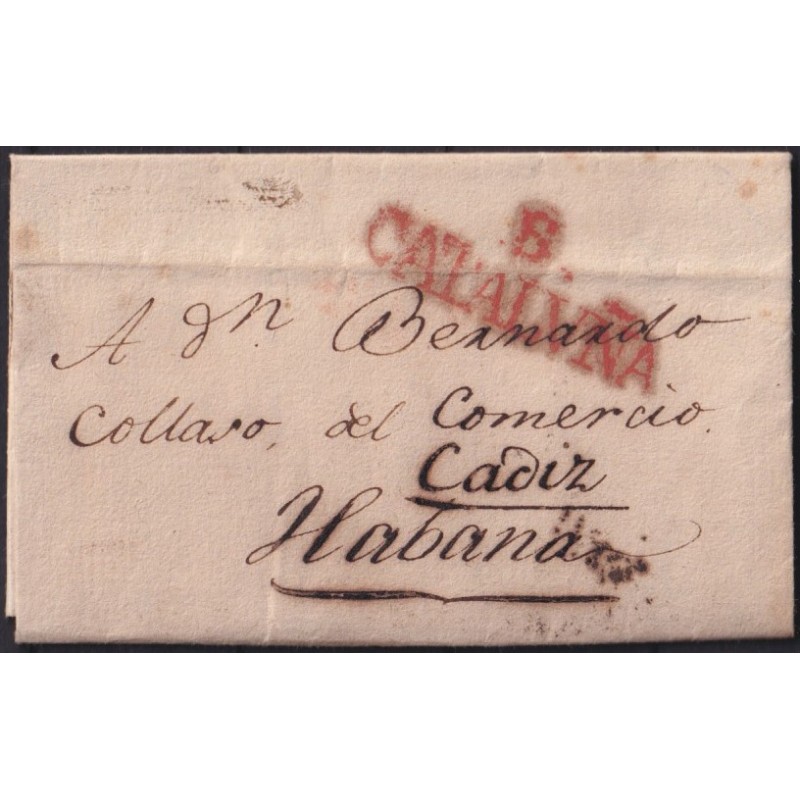 B.
CATALVÑA
A Dn Bernardo
Collaso, del Comercio.
Cadiz
Habana